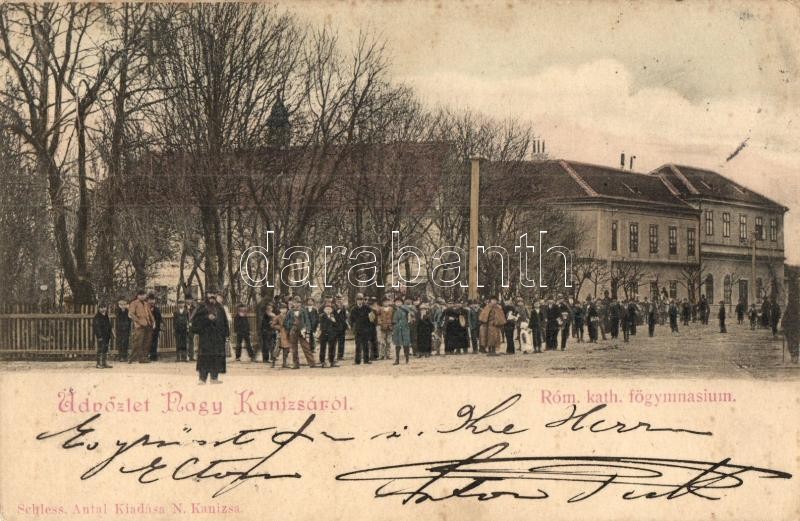 darabanth
Üdvözlet Nagy Kanizsáról.
Róm. kath. főgymnasium.
grüsst Ihr Herr
Anton
Schless. Antal Kiadása N. Kanizsa.